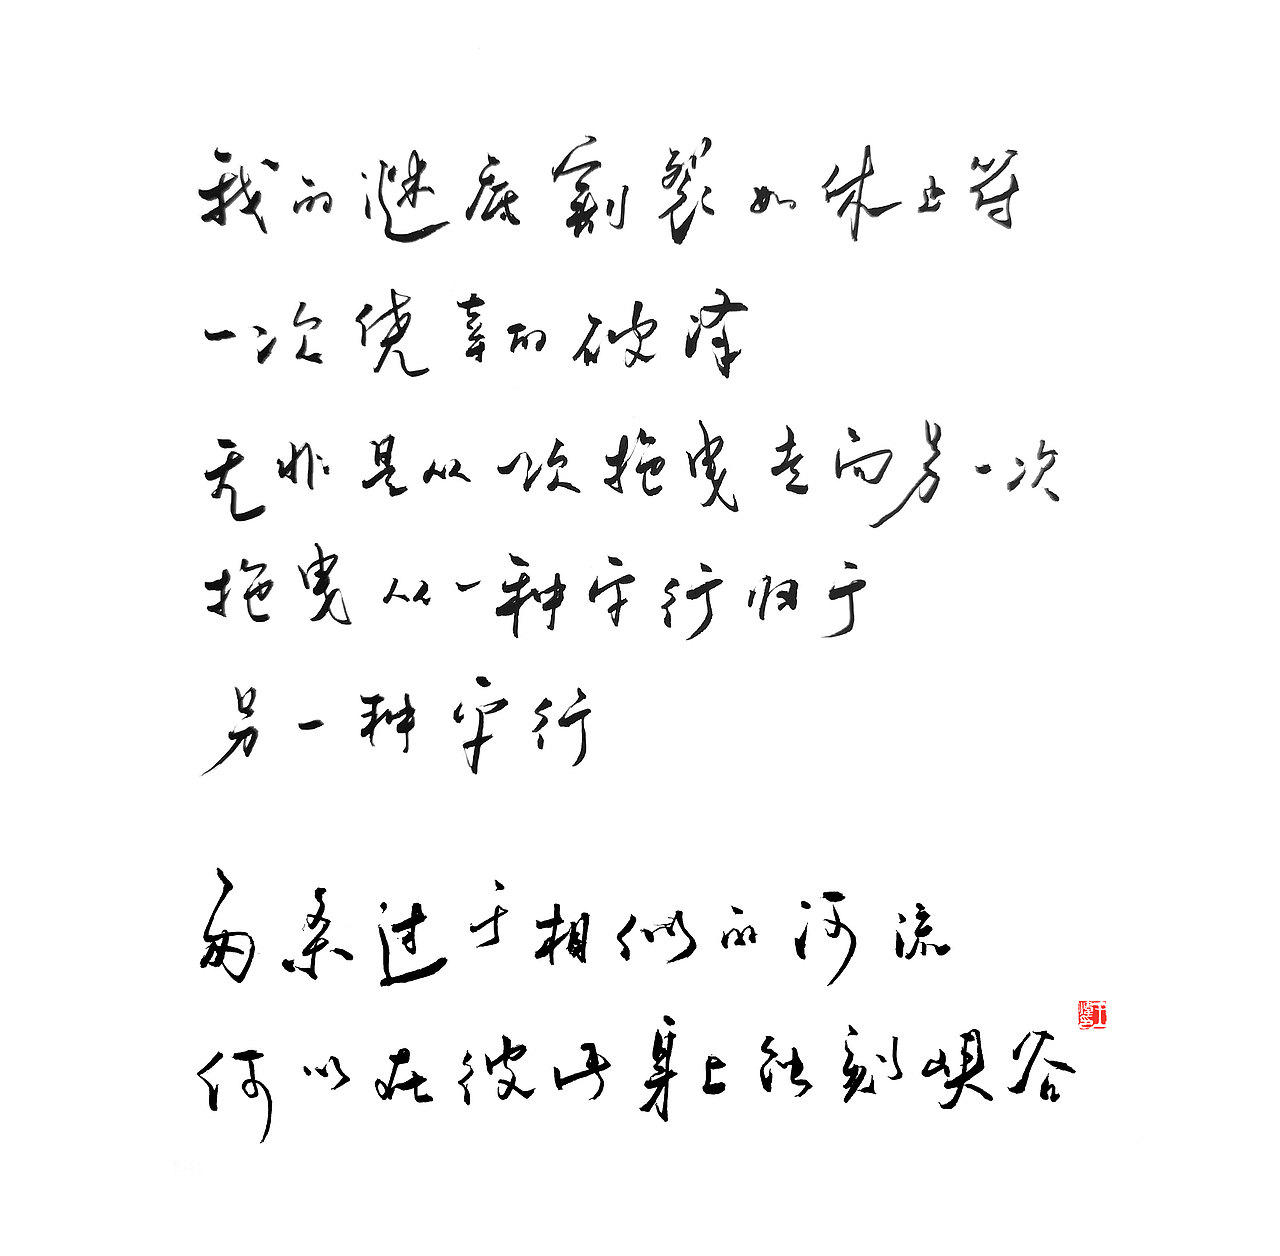 我的谜底割裂如休止符
一次侥幸的破译
无非是从一次拖曳走向另一次
拖曳从一种字行归于
另一种字行
两条过于相似的河流
何以在彼此身上蚀刻峡谷